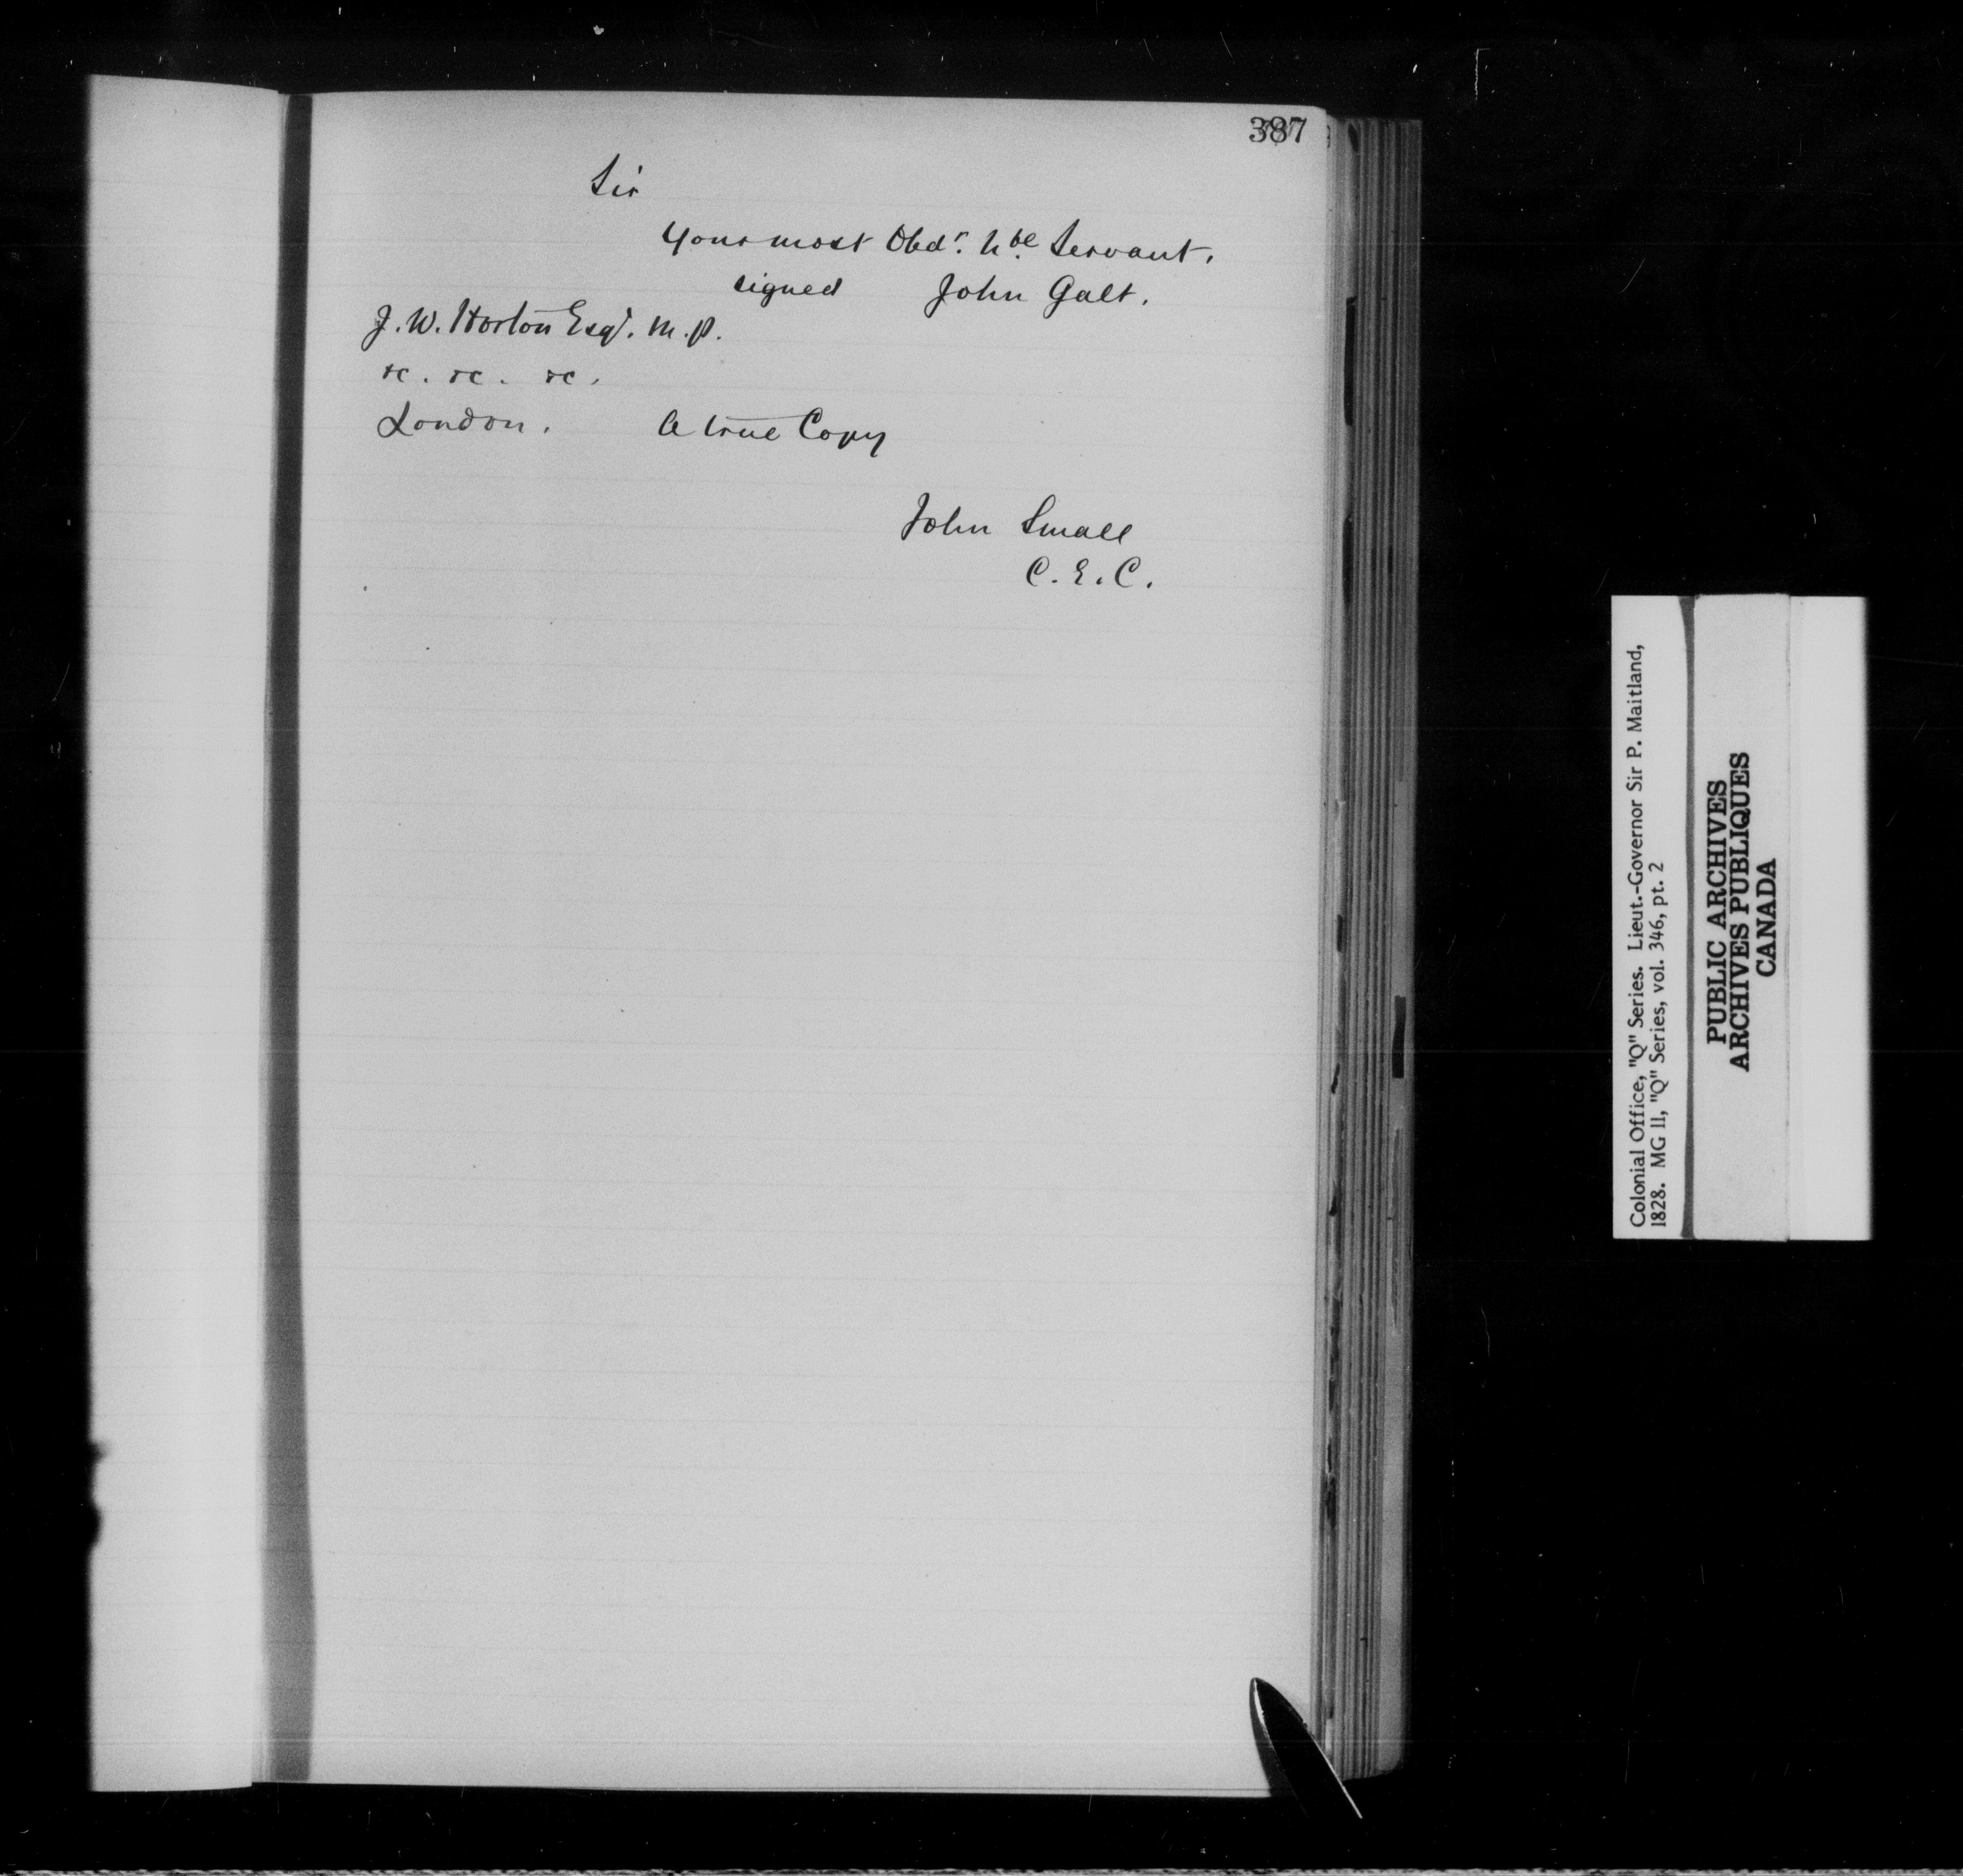 387
Sir
Your most Obdr. hble Servant.
signed John Galt.
J. W. Horton Esqr. M.P.
&c. &c. &c.
London. A true Copy
John Small
C. E. C.
Colonial Office, "Q" Series. Lieut.-Governor Sir P. Maitland,
1828. MG 11, "Q" Series, vol. 346, pt. 2
PUBLIC ARCHIVES
ARCHIVES PUBLIQUES
CANADA